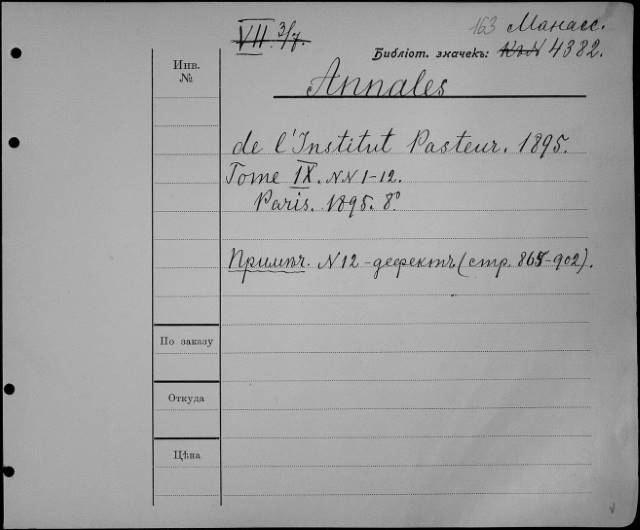 VII 3/7. 163 Манасс.
Библіот. значекъ: 4382.
Инв.
№
Annales
de l'Institut Pasteur. 1895.
Tome IX. NN 1-12.
Paris. 1895. 8°
Примѣч. N 12 - дефектъ (стр. 865-902).
По заказу
Откуда
Цѣна